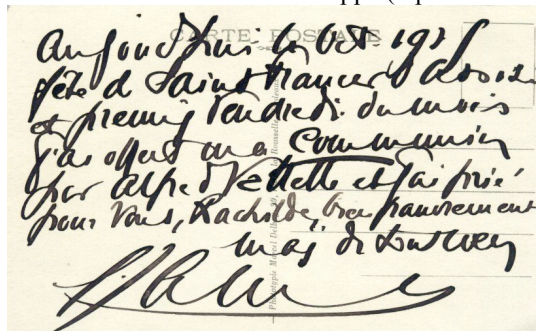 CARTE POSTALE
Aujourd'hui 4 Oct. 1935
fête de Saint François d'Assise
et premier Vendredi du mois
j'ai offert ma communion
pour Alfred Vallette et j'ai prié
pour vous, Rachilde, bien pauvrement
mais de tout cœur
Phototypie Marcel Delboy, la Rousselle